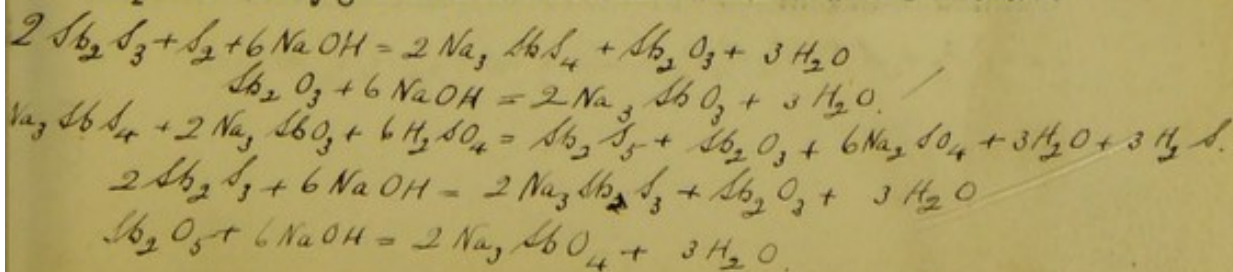 2 Sb₂S₃ + S₂ + 6 NaOH = 2 Na₃ SbS₄ + Sb₂O₃ + 3 H₂O
Sb₂O₃ + 6 NaOH = 2 Na₃ SbO₃ + 3 H₂O.
Na₃ SbS₄ + 2 Na₃ SbO₃ + 6 H₂SO₄ = Sb₂S₅ + Sb₂O₃ + 6 Na₂SO₄ + 3 H₂O + 3 H₂S.
2 Sb₂S₃ + 6 NaOH = 2 Na₃ Sb₂S₃ + Sb₂O₃ + 3 H₂O
Sb₂O₅ + 6 NaOH = 2 Na₃ SbO₄ + 3 H₂O.